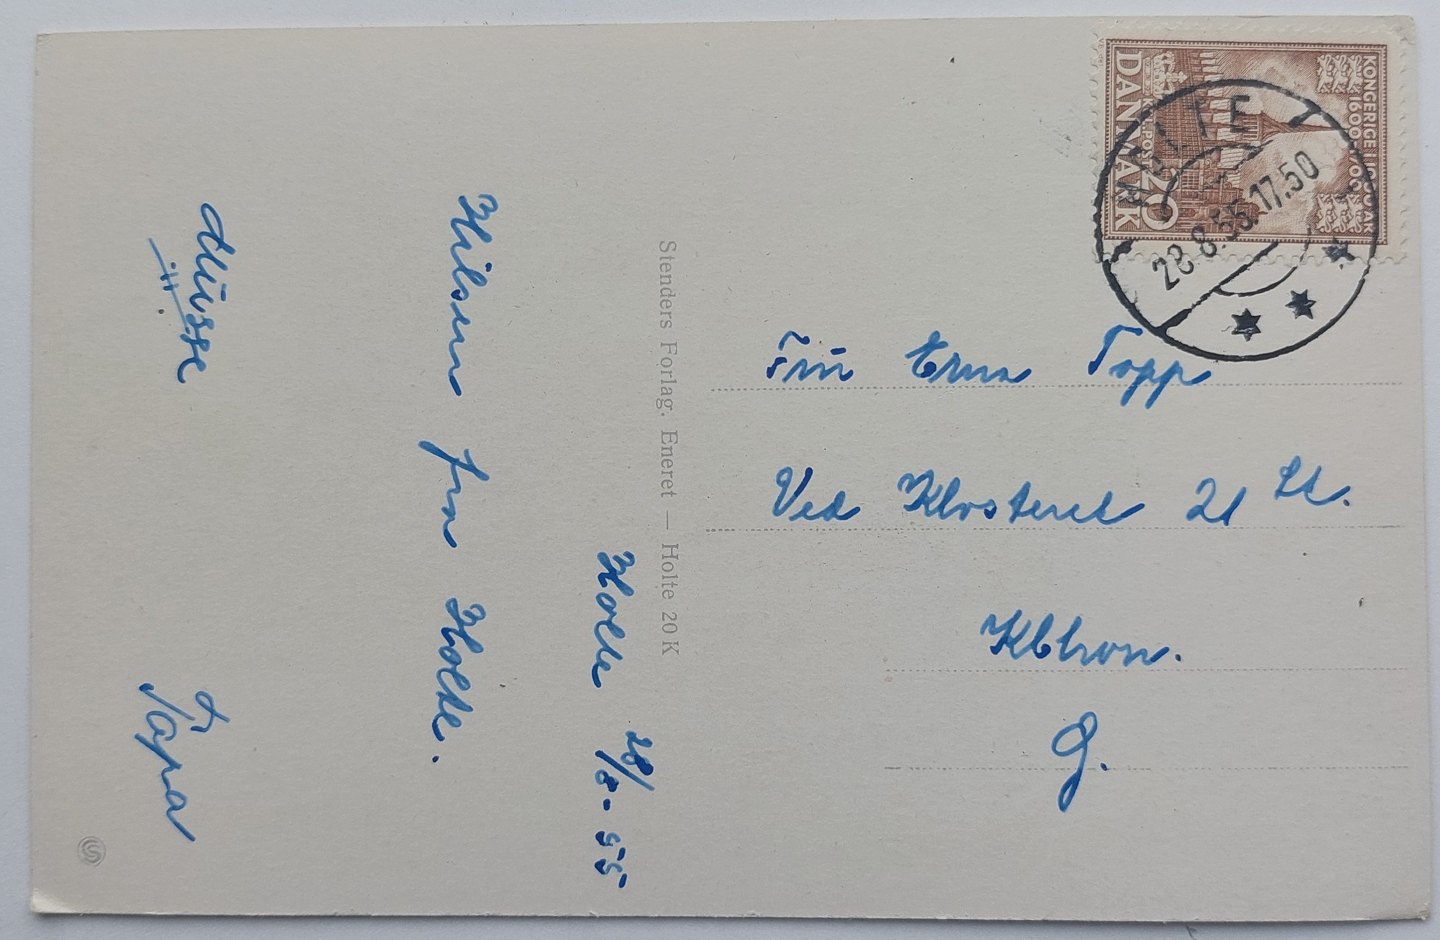 KONGERIGE I 1000 AAR
1600 1700
KGL. POST 20
DANMARK
HOLTE
28.8.55.17.50
Holte 28/8-55
Hilsen fra Holte.
Musse
Papa
Stenders Forlag. Eneret — Holte 20 K
Erna Topp
Ved Klosteret 21 St.
Kbhvn.
Ø.